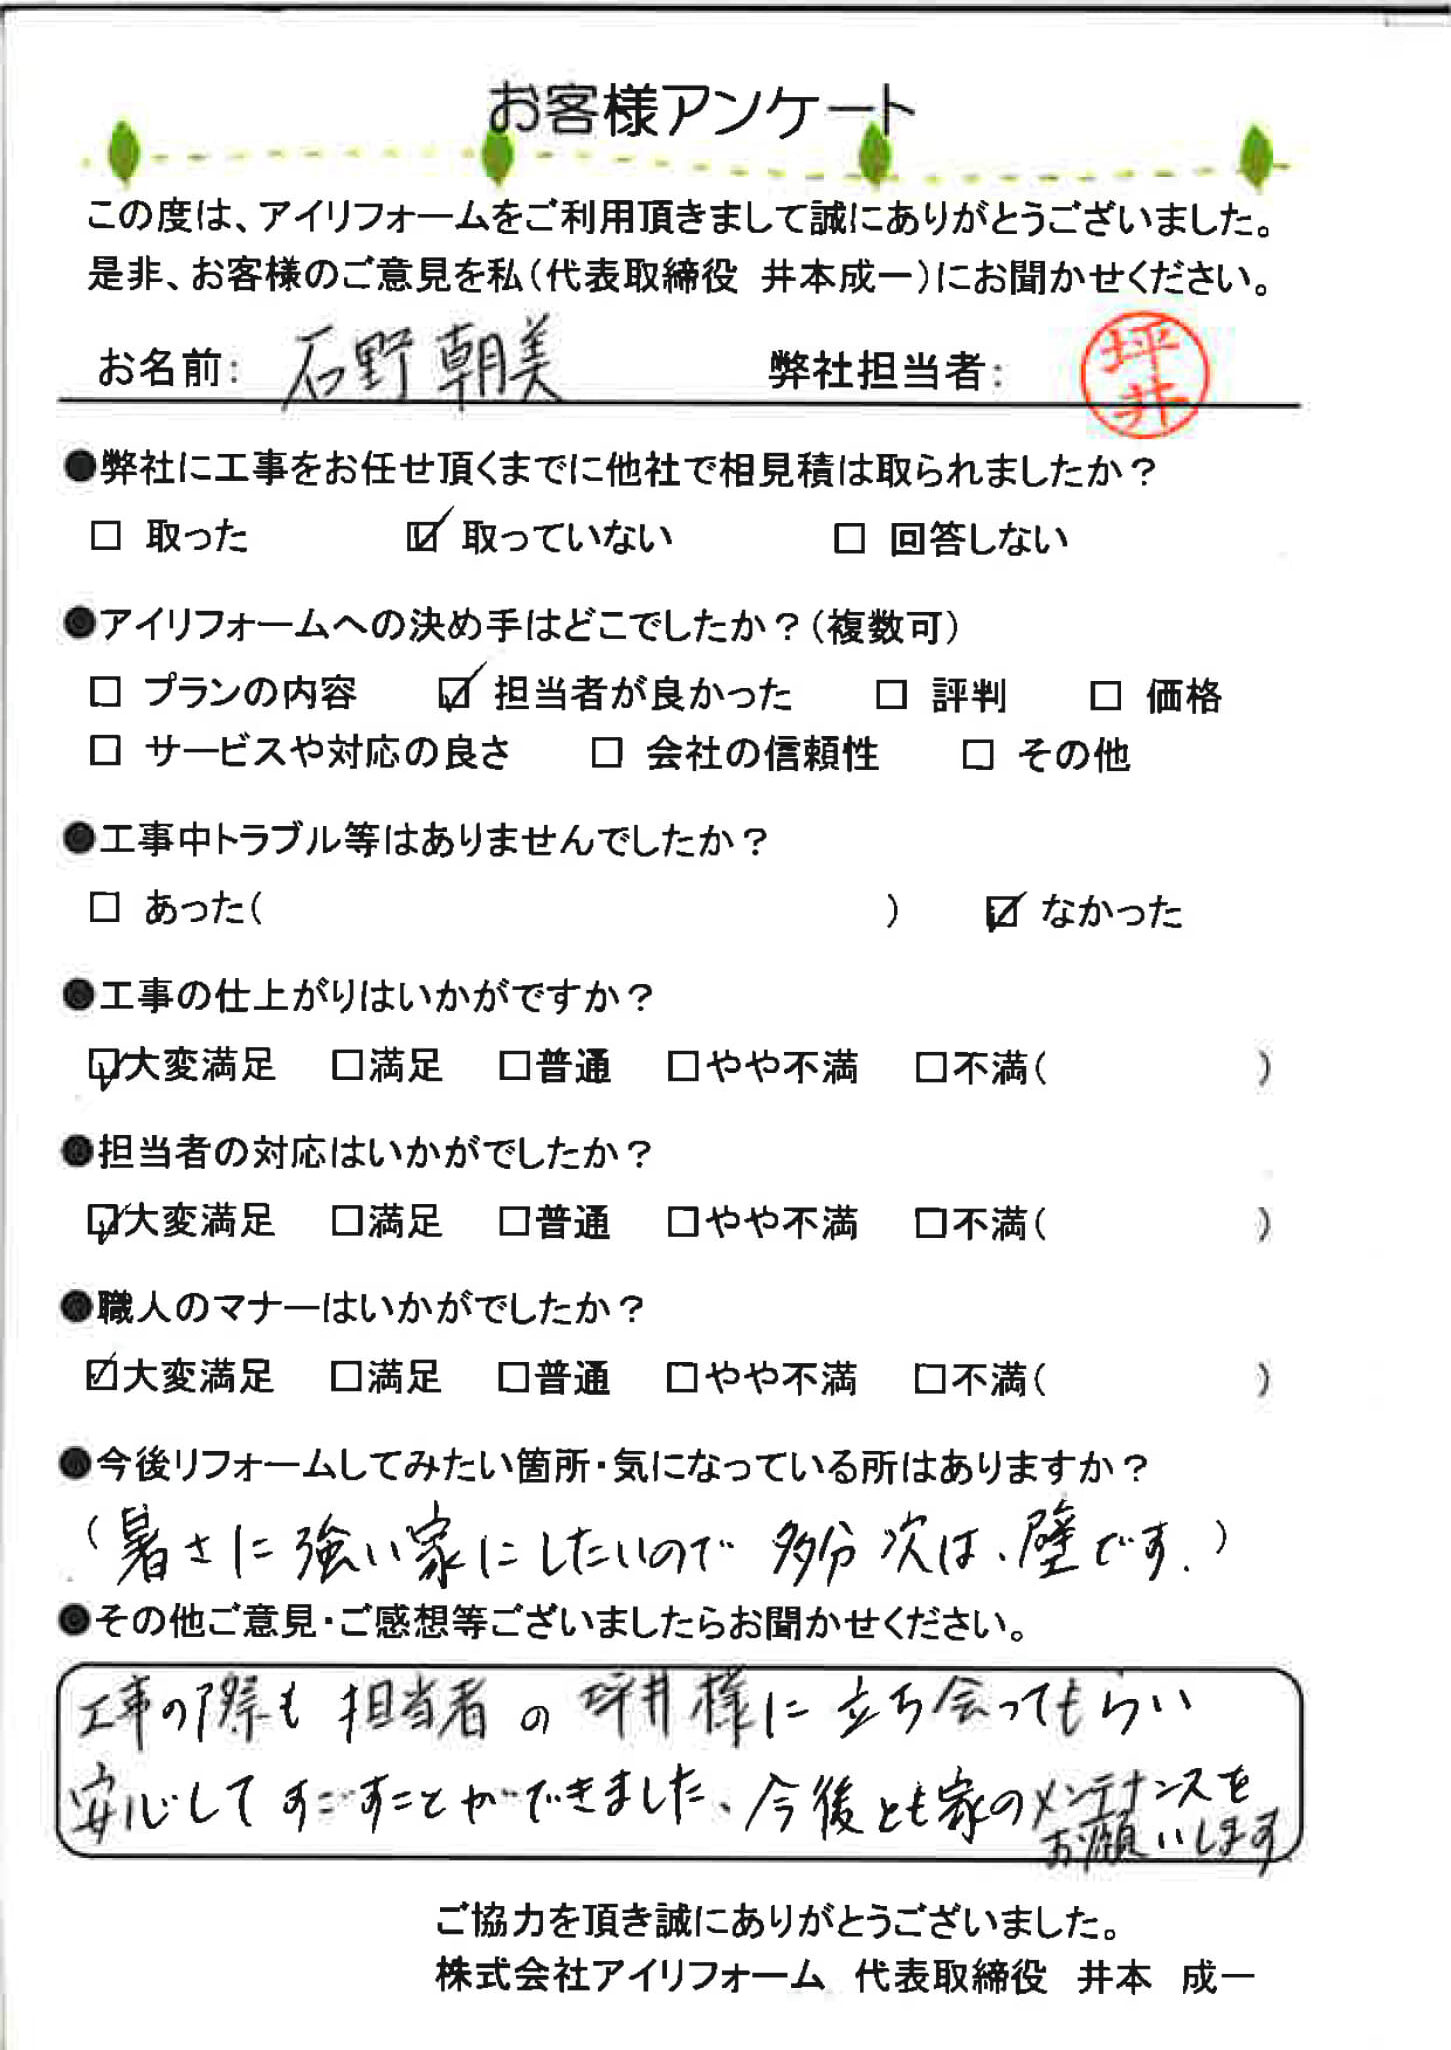 お客様アンケート
この度は、アイリフォームをご利用頂きまして誠にありがとうございました。
是非、お客様のご意見を私(代表取締役 井本成一)にお聞かせください。
お名前: 石野朝美 弊社担当者: 坪井
●弊社に工事をお任せ頂くまでに他社で相見積は取られましたか?
□ 取った ☑ 取っていない □ 回答しない
●アイリフォームへの決め手はどこでしたか?(複数可)
□ プランの内容 ☑ 担当者が良かった □ 評判 □ 価格
□ サービスや対応の良さ □ 会社の信頼性 □ その他
●工事中トラブル等はありませんでしたか?
□ あった( ) ☑ なかった
●工事の仕上がりはいかがですか?
☑大変満足 □満足 □普通 □やや不満 □不満( )
●担当者の対応はいかがでしたか?
☑大変満足 □満足 □普通 □やや不満 □不満( )
●職人のマナーはいかがでしたか?
☑大変満足 □満足 □普通 □やや不満 □不満( )
●今後リフォームしてみたい箇所・気になっている所はありますか?
(暑さに強い家にしたいので多分次は、壁です.)
●その他ご意見・ご感想等ございましたらお聞かせください。
工事の際も担当者の坪井様に立ち会ってもらい
安心してすごすことができました、今後とも家のメンテナンスを
お願いします
ご協力を頂き誠にありがとうございました。
株式会社アイリフォーム 代表取締役 井本 成一